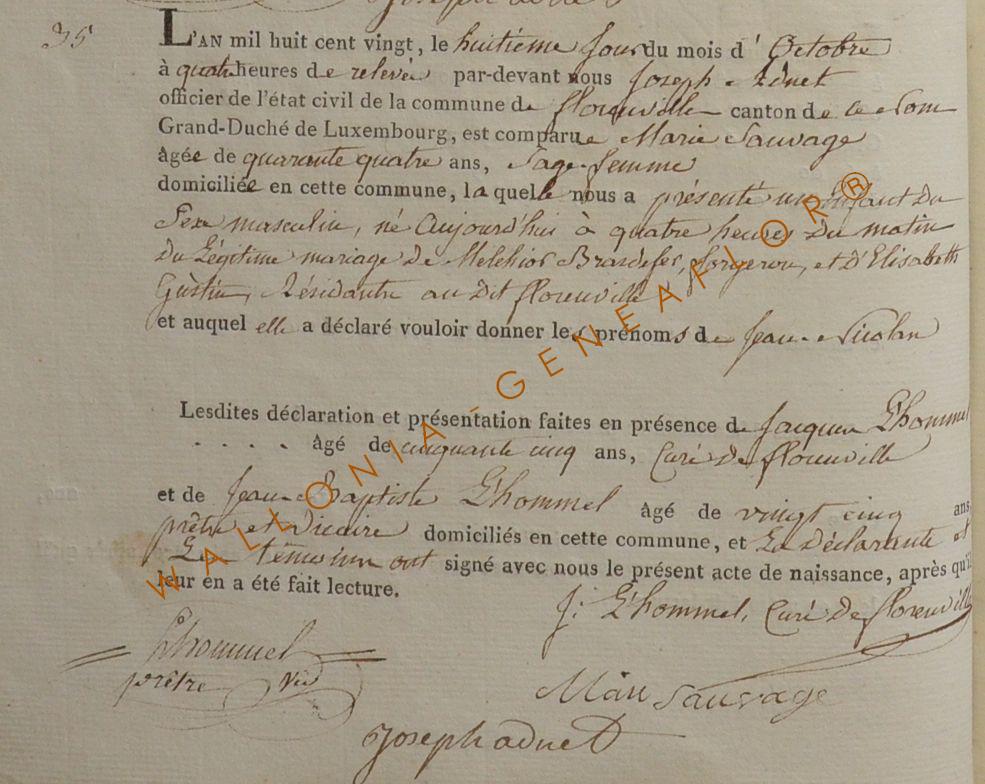 35
L'AN mil huit cent vingt, le huitieme jour du mois d' Octobre
à quatre heures de relevée par-devant nous Joseph Adnet
officier de l'état civil de la commune de florenville canton de ce Nom
Grand-Duché de Luxembourg, est comparue Marie Sauvage
âgée de quarante quatre ans, Sage-femme
domiciliée en cette commune, la quelle nous a présenté un Enfant Du
Sexe masculin, né Aujourd'hui à quatre heures Du matin
Du Légitime mariage de Melchior Brasdefer, forgeron, et D'Elisabeth
Gustin, Résidante au Dit florenville
et auquel elle a déclaré vouloir donner les prénoms de Jean-Nicolas
Lesdites déclaration et présentation faites en présence de Jacques L'hommel
. . . . âgé de cinquante cinq ans, Curé De florenville
et de Jean-Baptiste L'hommel âgé de vingt cinq ans
prêtre et Vicaire domiciliés en cette commune, et La Déclarante et
Les témoins ont signé avec nous le présent acte de naissance, après qu'il
leur en a été fait lecture.
J: L'hommel, Curé De florenville
Lhommel
prêtre Vic
Marie Sauvage
Joseph adnet
WALLONIA-GENEAFLOR®